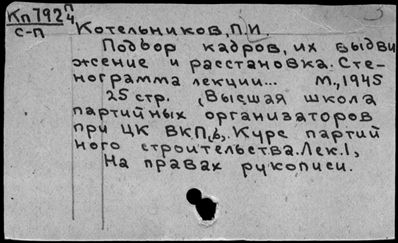 Кп792 п/4 Котельников, П.И.
С-П
Подбор кадров, их выдви
жение и расстановка. Сте-
нограмма лекции... М., 1945
25 стр. (Высшая школа
партийных организаторов
при ЦК ВКП/б/, Курс партий
ного строительства. Лек. 1,
На правах рукописи.